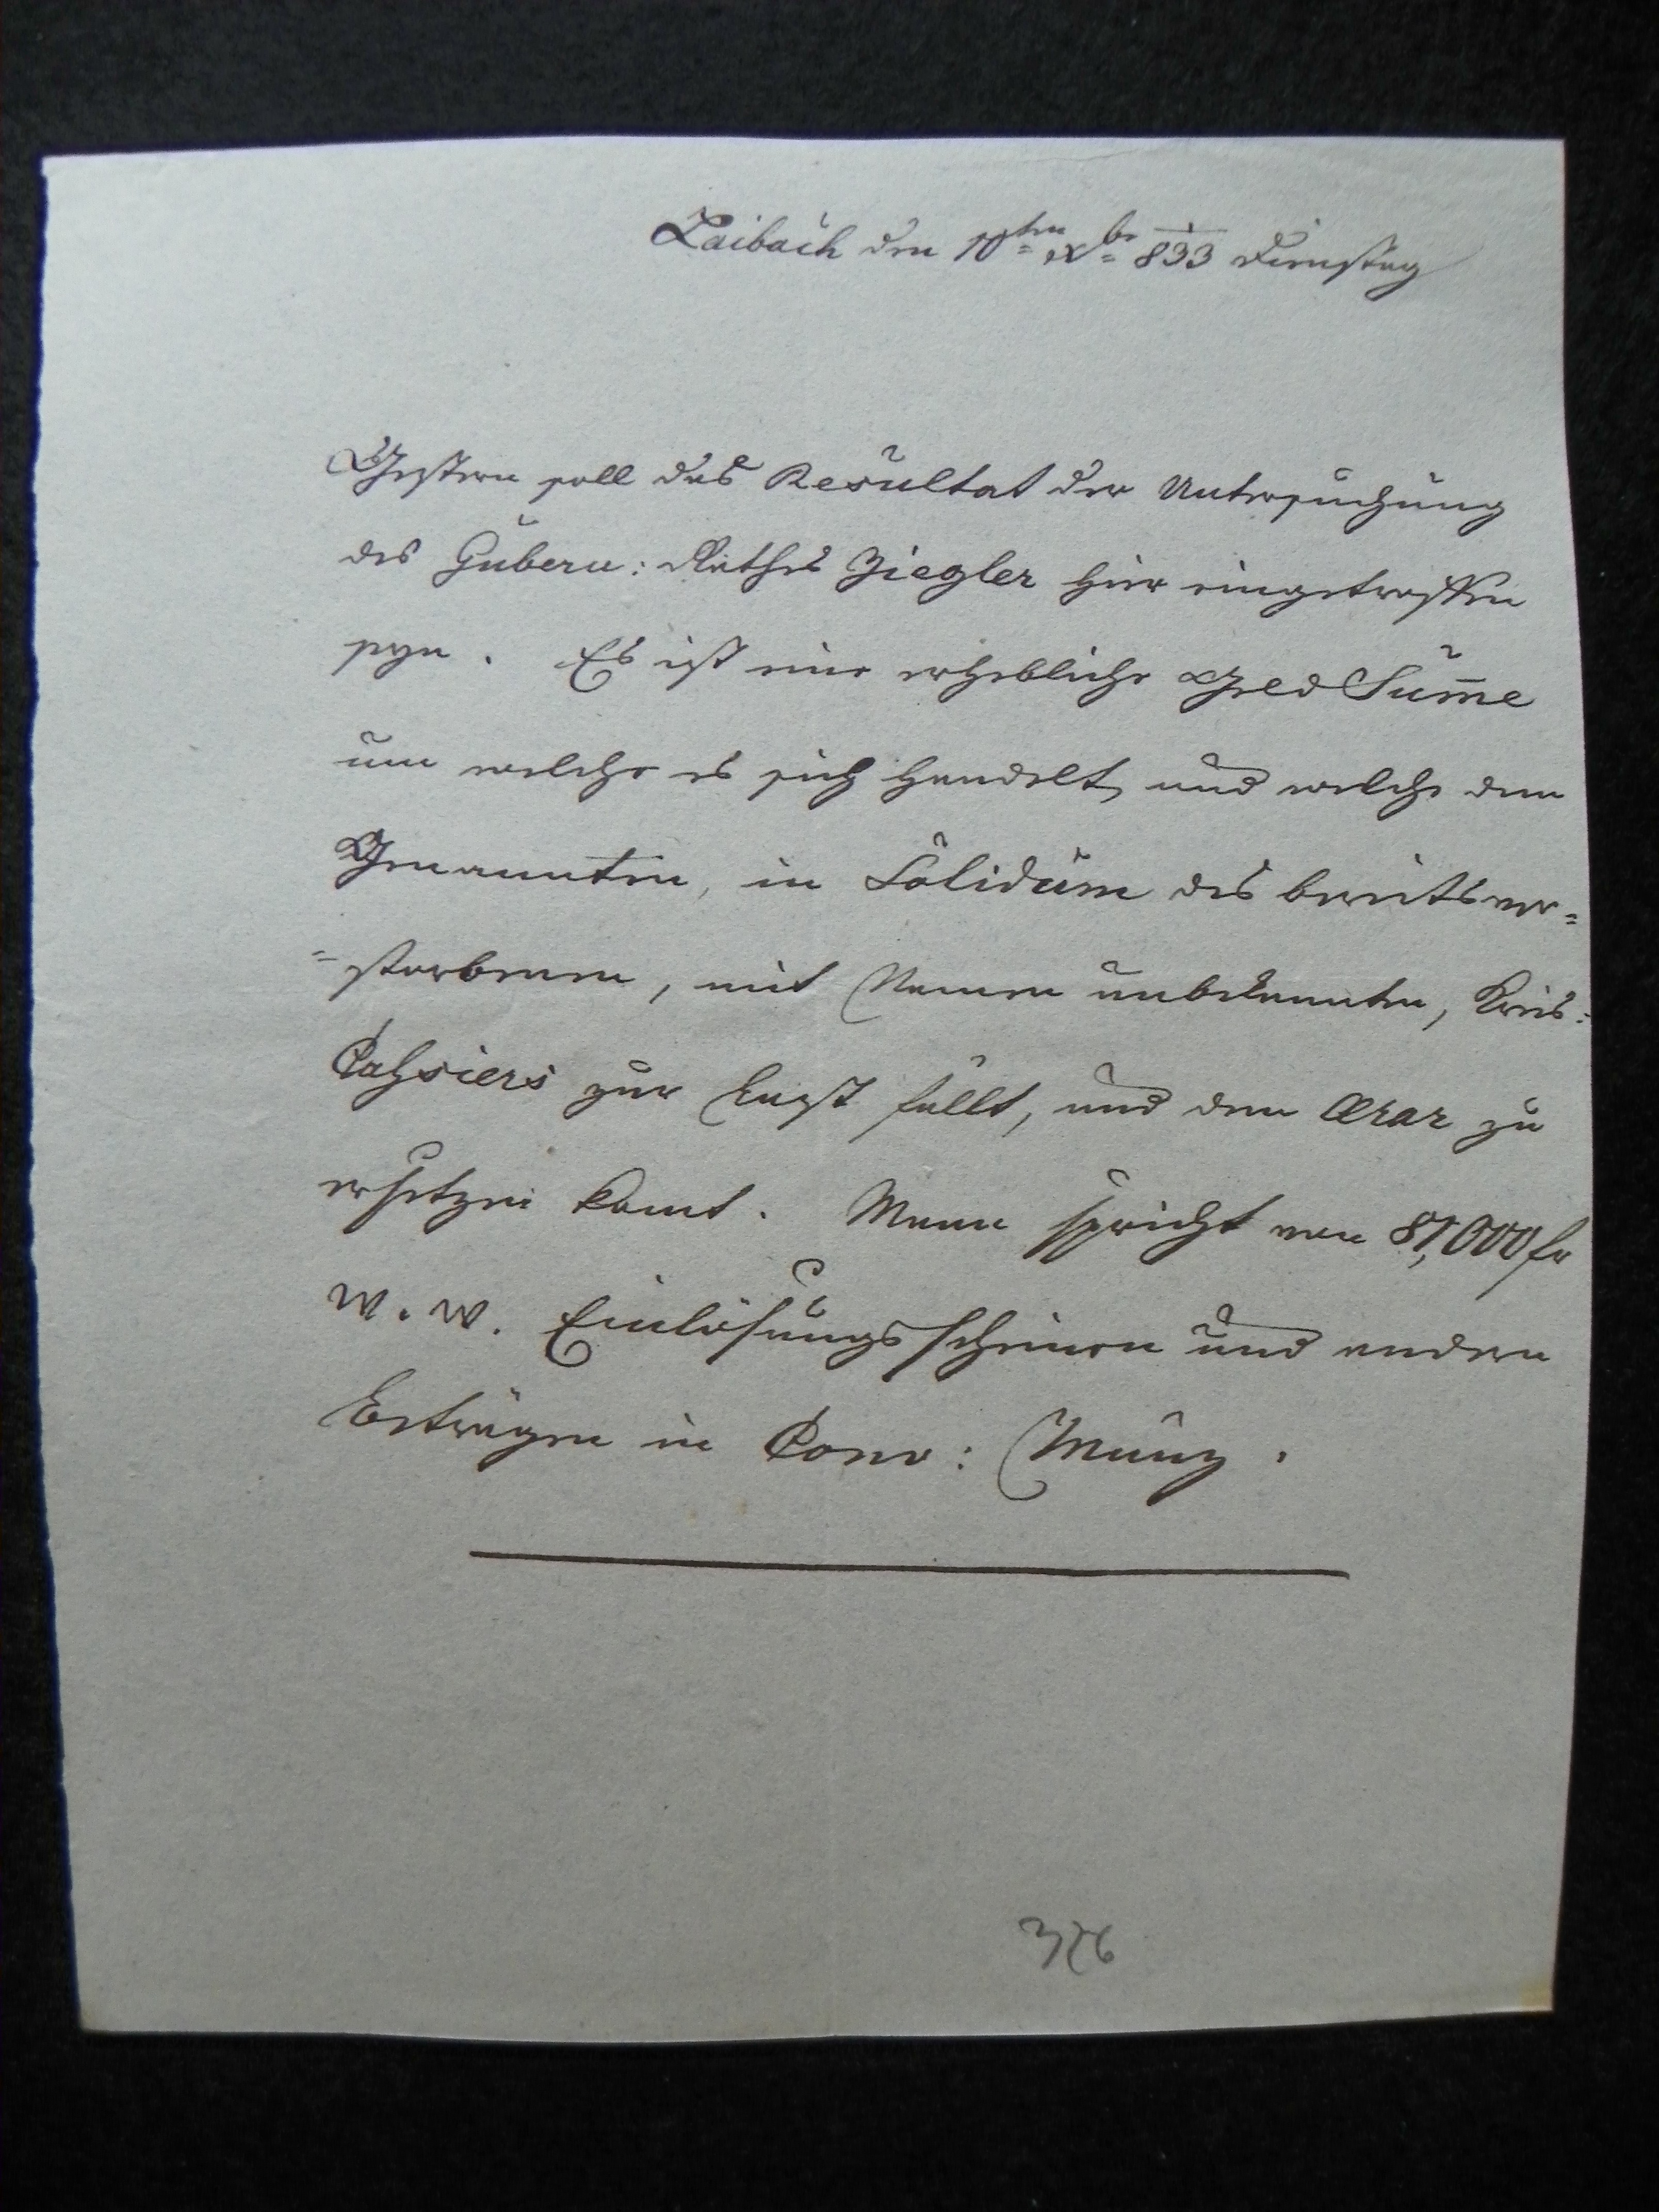 Laibach den 10ten Xbr 833 Dienstag
Gestern soll das Resultat der Untersuchung
des Gubern: Rathes Ziegler hier eingetroffen
seyn. Es ist eine erhebliche Geld Sum̅e
um welche es sich handelt, und welche dem
Genannten, in Solidum des bereits ver=
=storbenen, mit Namen unbekannten, Kreis=
Cahsiers zur Last fällt, und dem Ærar zu
ersetzen kom̅t. Mann spricht von 81,000 fr
W. W. Einlösungsscheinen und andern
Beträgen in Conv: Münz.
326